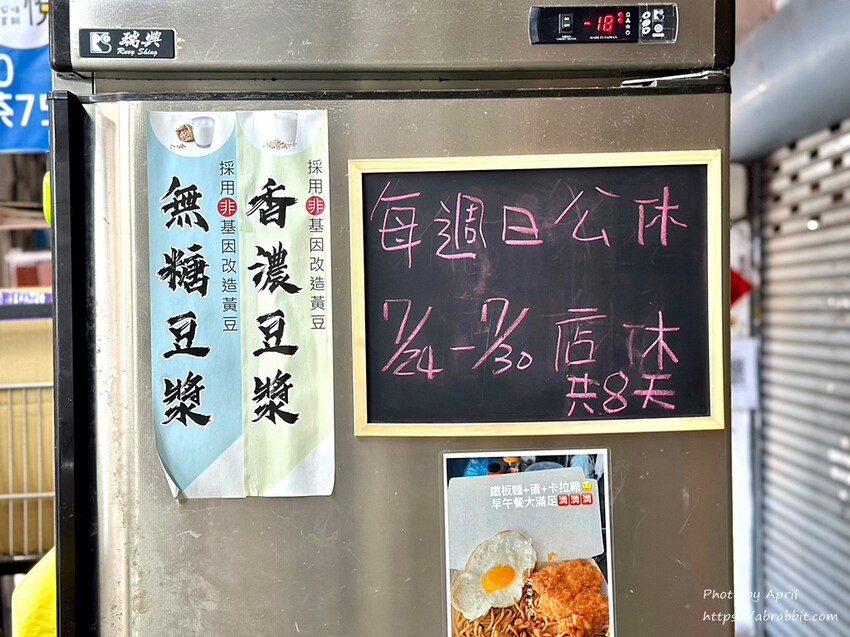 瑞興
Ruey Shing
-18
MADE IN TAIWAN
採用非基因改造黃豆
無糖豆漿
採用非基因改造黃豆
香濃豆漿
每週日公休
7/24-7/30店休
共8天
鐵板麵+蛋+卡拉雞
早午餐大滿足潤潤潤
Photo by April
https://abrabbit.com